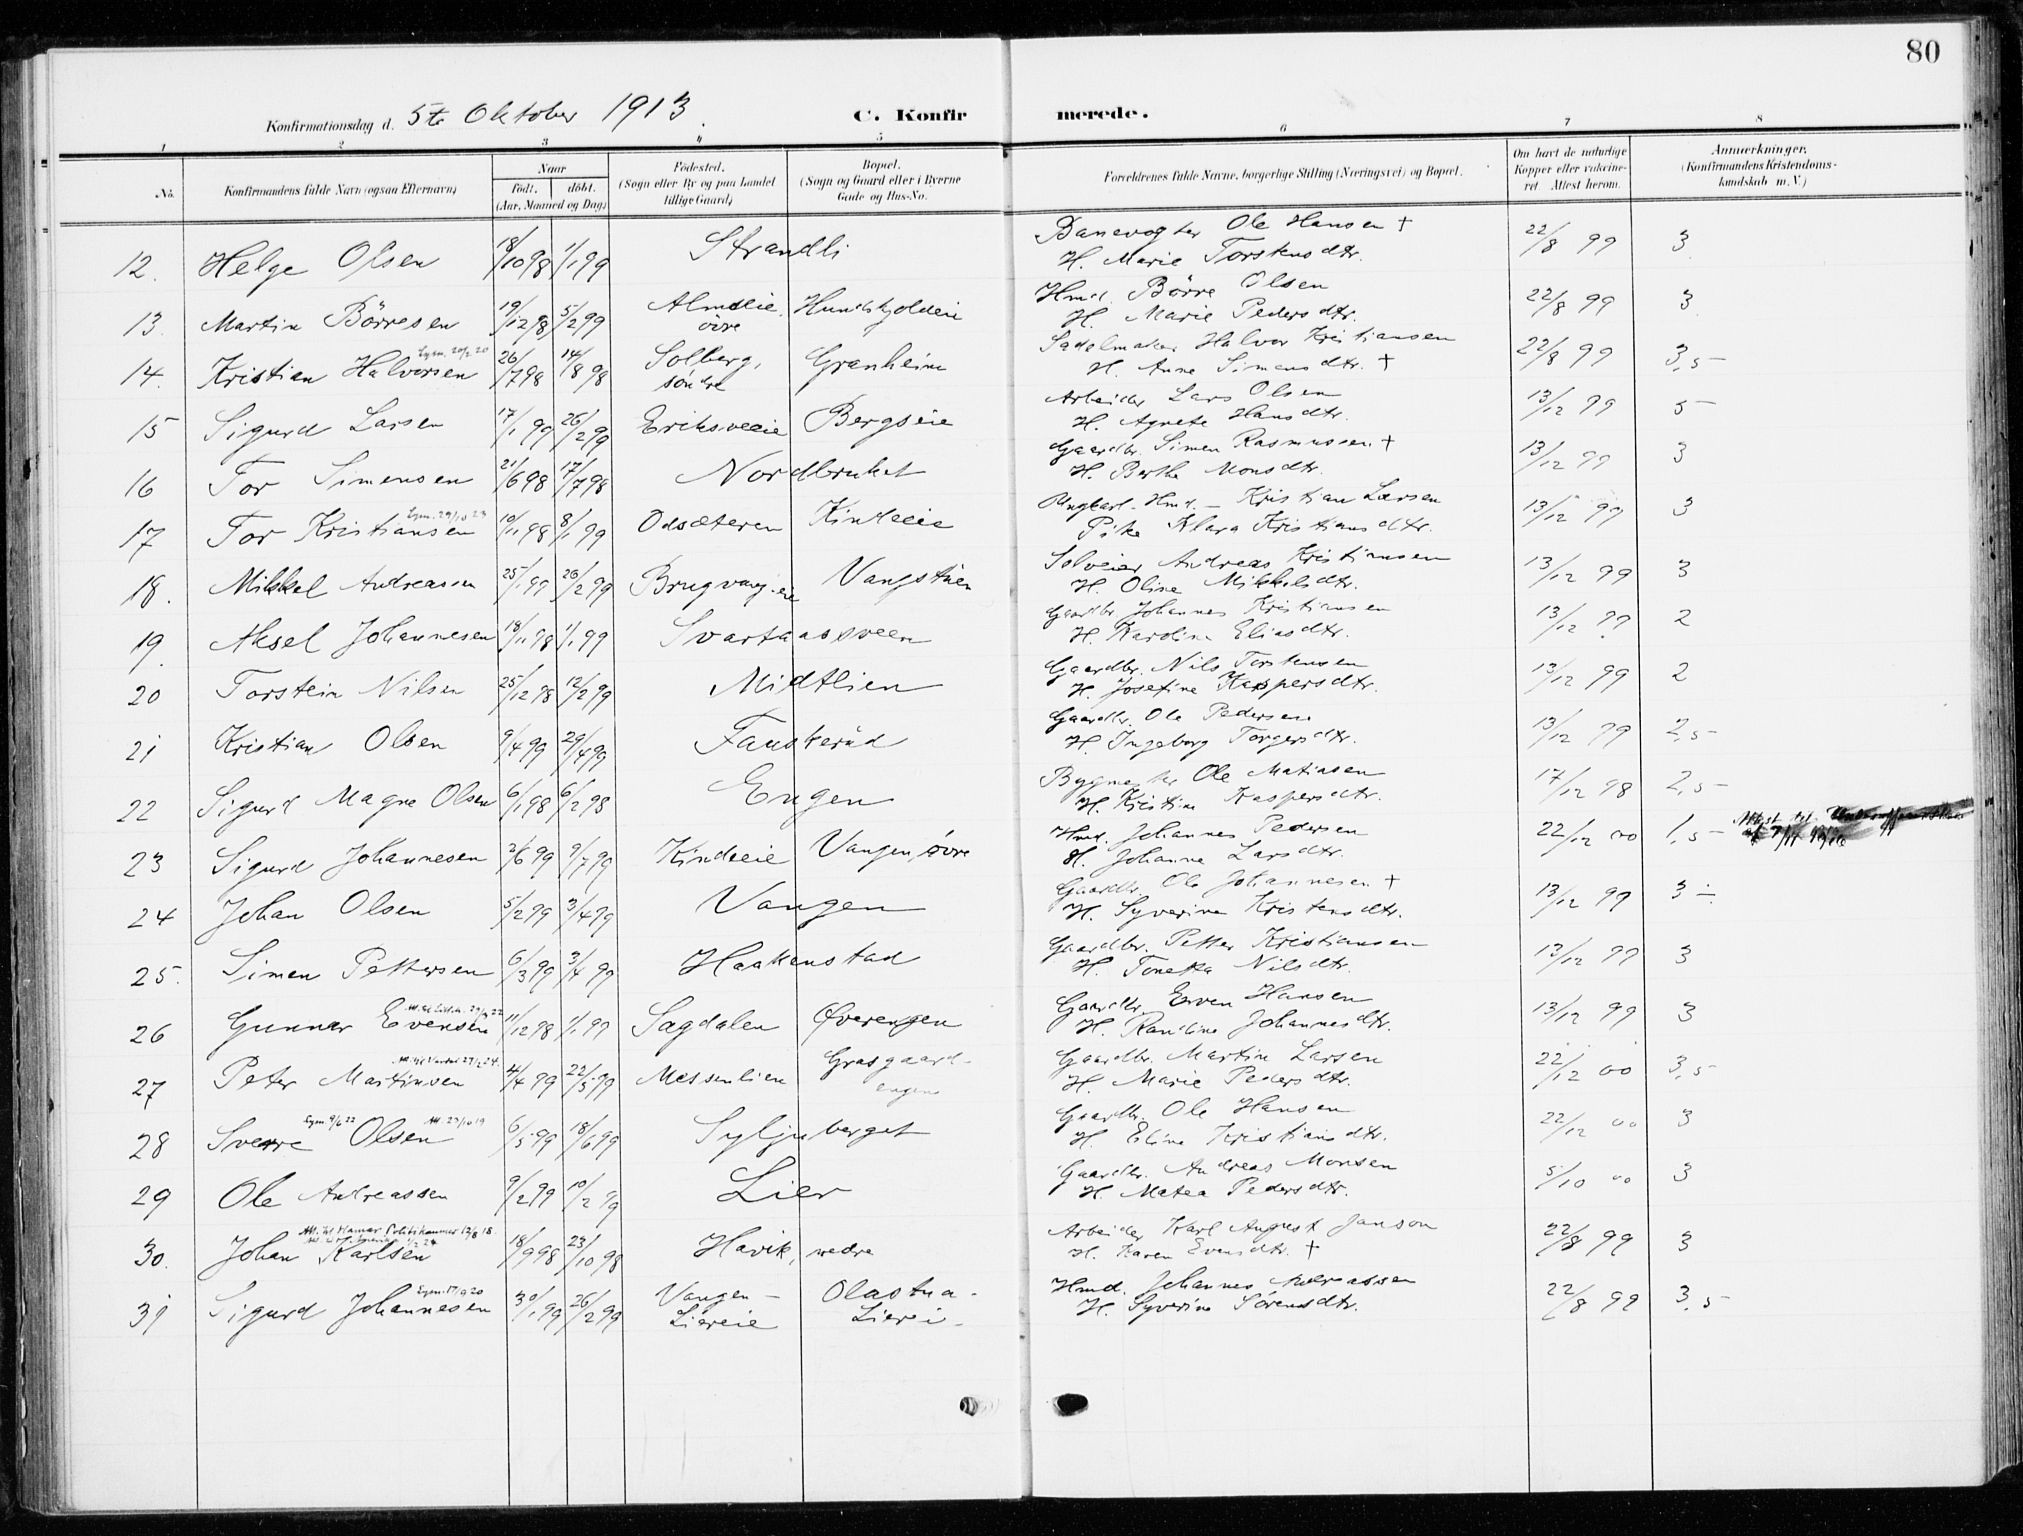 80
Konfirmationsdag d. 5te Oktober 1913.
C. Konfirmerede.
1 2 3 4 5 6 7 8
No. | Konfirmandens fulde Navn (ogsaa Efternavn) | Naar födt. döbt. (Aar, Maaned og Dag) | Födested. (Sogn eller By og paa Landet tillige Gaard) | Bopæl. (Sogn og Gaard eller i Byerne Gade og Hus-No. | Forældrenes fulde Navne, borgerlige Stilling (Næringsvei) og Bopæl. | Om havt de naturlige Kopper eller vakcineret. Attest herom. | Anmærkninger. (Konfirmandens Kristendomskundskab m. V.)
12. Helge Olsen 18/10 98 1/1 99 Strandli Banevogter Ole Hansen + 22/8 99 3
H. Marie Torstensdtr.
13. Martin Börresen 19/12 98 5/2 99 Almseie øvre Hundskjoldeie Hmd. Börre Olsen 22/8 99 3
H. Marie Pedersdtr.
14. Kristian Halvorsen 26/7 98 14/8 98 Solberg, søndre Granheim Sadelmaker Halvor Kristiansen 22/8 99 3,5
H. Anne Simensdtr. +
15 Sigurd Larsen 17/1 99 26/2 99 Eriksveeie Bergseie Arbeider Lars Olsen 13/12 99 5
H. Agnete Hansdtr.
16 Tor Simensen 21/6 98 17/7 98 Nordbruket Gaardbr. Simen Rasmussen + 13/12 99 3
H. Berthe Monsdtr.
17 Tor Kristiansen 10/11 98 8/1 99 Odsæteren Kindseie Ungkarl - Hmd. - Kristian Larsen 13/12 99 3
Pike Klara Kristiansdtr.
18. Mikkel Andreassen 25/1 99 26/2 99 Brugvang.eie Vangstuen Andreas Kristiansen 13/12 99 3
H. Oline Mikkelsdtr.
19. Aksel Johannesen 18/11 98 1/1 99 Svartaassveen Gaardbr. Johannes Kristiansen 13/12 99 2
H. Karoline Eliasdtr.
20 Torstein Nilsen 25/12 98 12/2 99 Midtlien Gaardbr. Nils Torstensen 13/12 99 2
H. Josefine Kaspersdtr.
21 Kristian Olsen 9/4 99 29/4 99 Fauskerud Gaardbr. Ole Pedersen 13/12 99 2,5
H. Ingeborg Torgersdtr.
22 Sigurd Magne Olsen 6/1 98 6/2 98 Engen Bygmester Ole Matiasen 17/12 98 2,5
H. Kristine Kaspersdtr.
23 Sigurd Johannesen 2/6 99 9/7 99 Kindseie Vangen, øvre Hmd. Johannes Pedersen 22/12 00 1,5 Attest til
H. Johanne Larsdtr.
24 Johan Olsen 5/2 99 3/4 99 Vangen Gaardbr. Ole Johannesen + 13/12 99 3 ÷
H. Syverine Kristensdtr.
25. Simen Pettersen 6/3 99 3/4 99 Haakenstad Gaardbr. Petter Kristiansen 13/12 99 3
H. Tonetta Nilsdtr.
26 Gunnar Evensen 11/12 98 1/1 99 Sagdalen Øverengen Gaardbr. Even Hansen 13/12 99 3
H. Randine Johannesdtr.
27 Peter Martinsen 4/4 99 22/5 99 Messenlien Grasgaardengen Gaardbr. Martin Larsen 22/12 00 3,5
H. Marie Pedersdtr.
28 Sverre Olsen 6/5 99 18/6 99 Syljuberget Gaardbr. Ole Hansen 22/12 00 3
H. Eline Kristiansdtr.
29 Ole Andreassen 9/2 99 10/2 99 Lier Gaardbr. Andreas Monsen 5/10 00 3
H. Matea Pedersdtr.
Att. til Hamar Politikammer 12/8 18.
30. Johan Karlsen 18/9 98 23/10 98 Havik, nedre Arbeider Karl August Janson 22/8 99 3
H. Karen Evensdtr. +
31 Sigurd Johannesen 30/1 99 26/2 99 Vangen - Liereie Olastua - Lierei - Hmd. Johannes Andreassen 22/8 99 3,5
H. Syverine Sørensdtr.